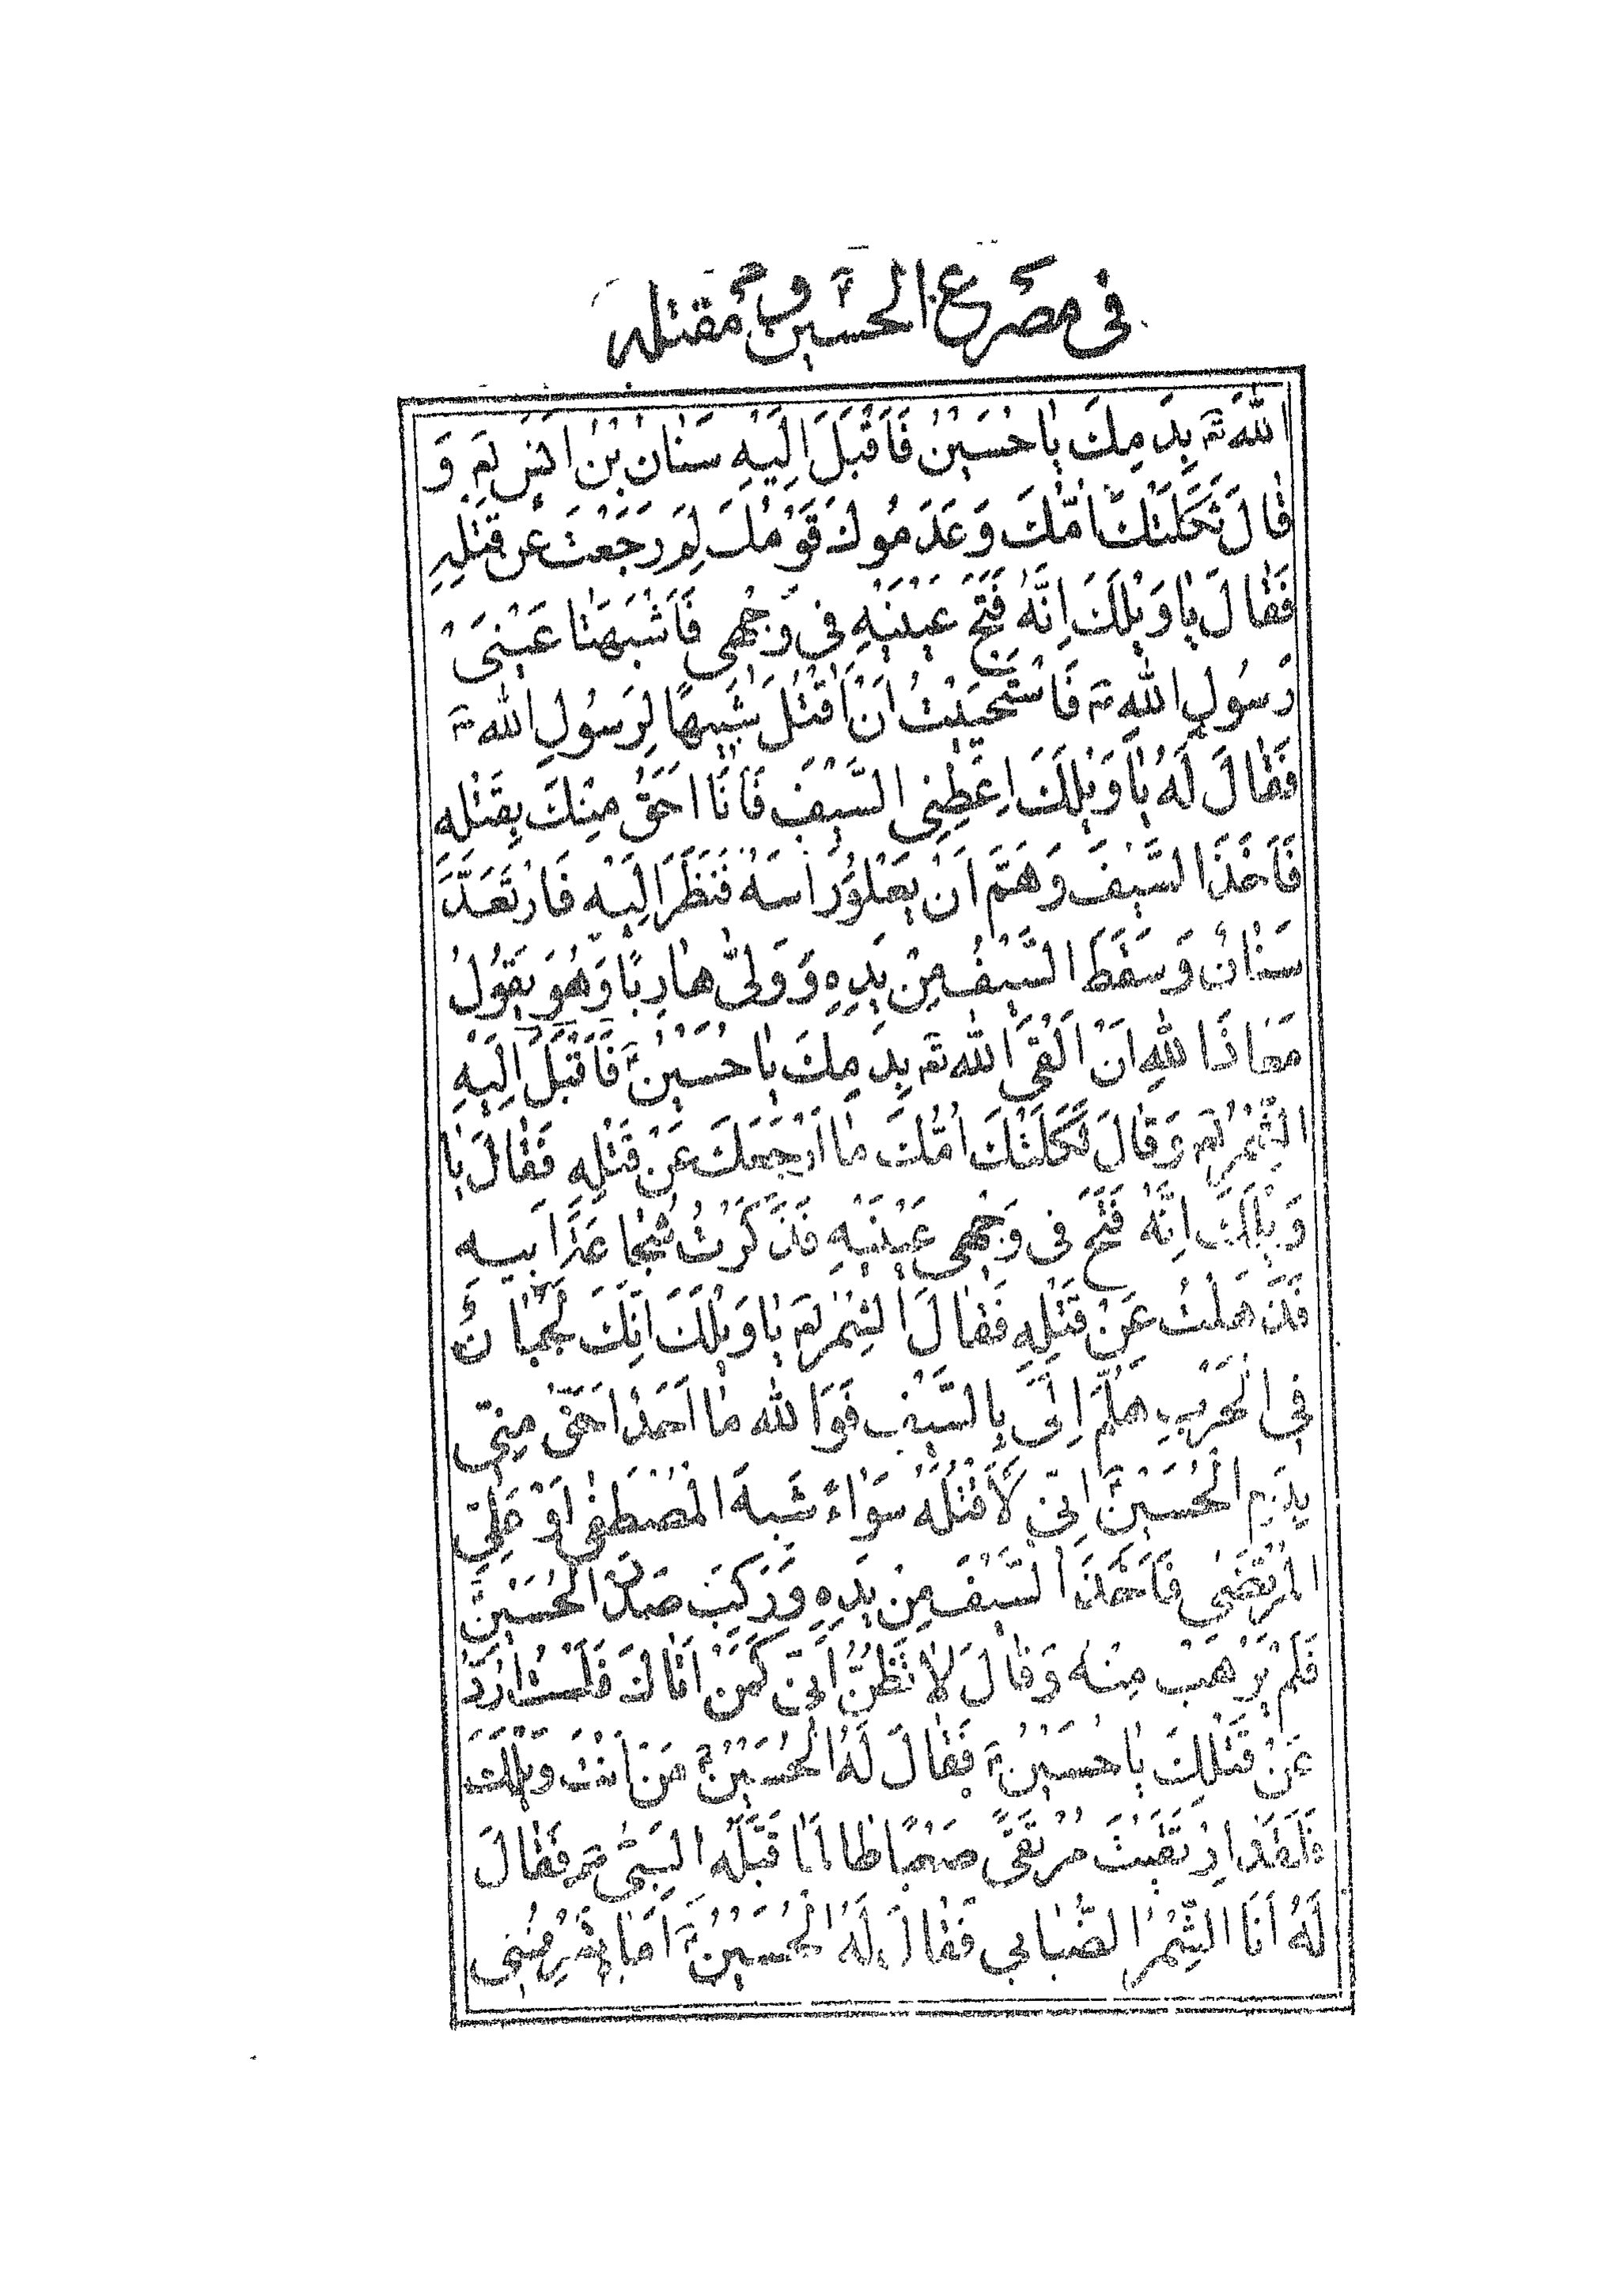 في مصرع الحسين ومقتله
الله تعَ بِدَمِكَ يٰا حُسَيْنُ فَاَقْبَلَ اِلَيْهِ سَنٰانُ بْنُ اَنَسٍ لعَ وَ
قٰالَ ثَكَلَتْكَ اُمُّكَ وَعَدَمُوكَ قَوْمُكَ لِمَ رَجَعْتَ عَنْ قَتْلِهِ
فَقٰالَ يٰا وَيْلَكَ اِنَّهُ فَتَحَ عَيْنَيْهِ فى وَجْهى فَاَشْبَهَتٰا عَيْنَىْ
رَسُولِ اللهِ صَ فَاسْتَحْيَيْتُ اَنْ اَقْتُلَ شَبيهًا لِرَسُولِ الله صَ
فَقٰالَ لَهُ يٰا وَيْلَكَ اِعْطِنِى السَّيْفَ فَاَنَا اَحَقُّ مِنْكَ بِقَتْلِهِ
فَاَخَذَ السَّيْفَ وَهَمَّ اَنْ يَعْلُوَ رَاْسَهُ فَنَظَرَ اِلَيْهِ فَارْتَعَدَ
سَنٰانُ وَسَقَطَ السَّيْفُ مِنْ يَدِهِ وَوَلّىٰ هٰارِبًا وَهُوَ يَقُولُ
مَعٰاذَ اللهِ اَنْ اَلْقَى اللهَ تعَ بِدَمِكَ يٰا حُسَيْنُ عَ فَاَقْبَلَ اِلَيْهِ
الشِّمْرُ لعَ وَقٰالَ ثَكَلَتْكَ اُمُّكَ مٰا اَرْجَعَكَ عَنْ قَتْلِهِ فَقٰالَ يٰا
وَيْلَكَ اِنَّهُ فَتَحَ فى وَجْهى عَيْنَيْهِ فَذَكَرْتُ شُجٰاعَةَ اَبيهِ
فَذَهَلْتُ عَنْ قَتْلِهِ فَقٰالَ الشِّمْرُ لعَ يٰا وَيْلَكَ اِنَّكَ لَجَبٰانٌ
فِى الْحَرْبِ هَلُمَّ اِلَىَّ بِالسَّيْفِ فَوَ اللهِ مٰا اَحَدٌ اَحَقَّ مِنّى
بِدَمِ الْحُسَيْنِ عَ اِنّى لَاَقْتُلُهُ سَوٰاءً شَبَهَ الْمُصْطَفىٰ اَوْ عَلِىِّ
الْمُرْتَضىٰ فَاَخَذَ السَّيْفَ مِنْ يَدِهِ وَرَكِبَ صَدْرَ الْحُسَيْنِ عَ
فَلَمْ يَرْهَبْ مِنْهُ وَقٰالَ لٰا تَظُنُّ اَنّى كَمَنْ اَتٰاكَ فَلَسْتُ اَرُدُّ
عَنْ قَتْلِكَ يٰا حُسَيْنُ عَ فَقٰالَ لَهُ الْحُسَيْنُ عَ مَنْ اَنْتَ وَيْلَكَ
فَلَقَدِ ارْتَقَيْتَ مُرْتَقىً صَعْبًا طٰالَمٰا قَبَّلَهُ النَّبِىُّ صَ فَقٰالَ
لَهُ اَنَا الشِّمْرُ الضَّبٰابى فَقٰالَ لَهُ الْحُسَيْنُ عَ اَمٰا تَعْرِفُنى